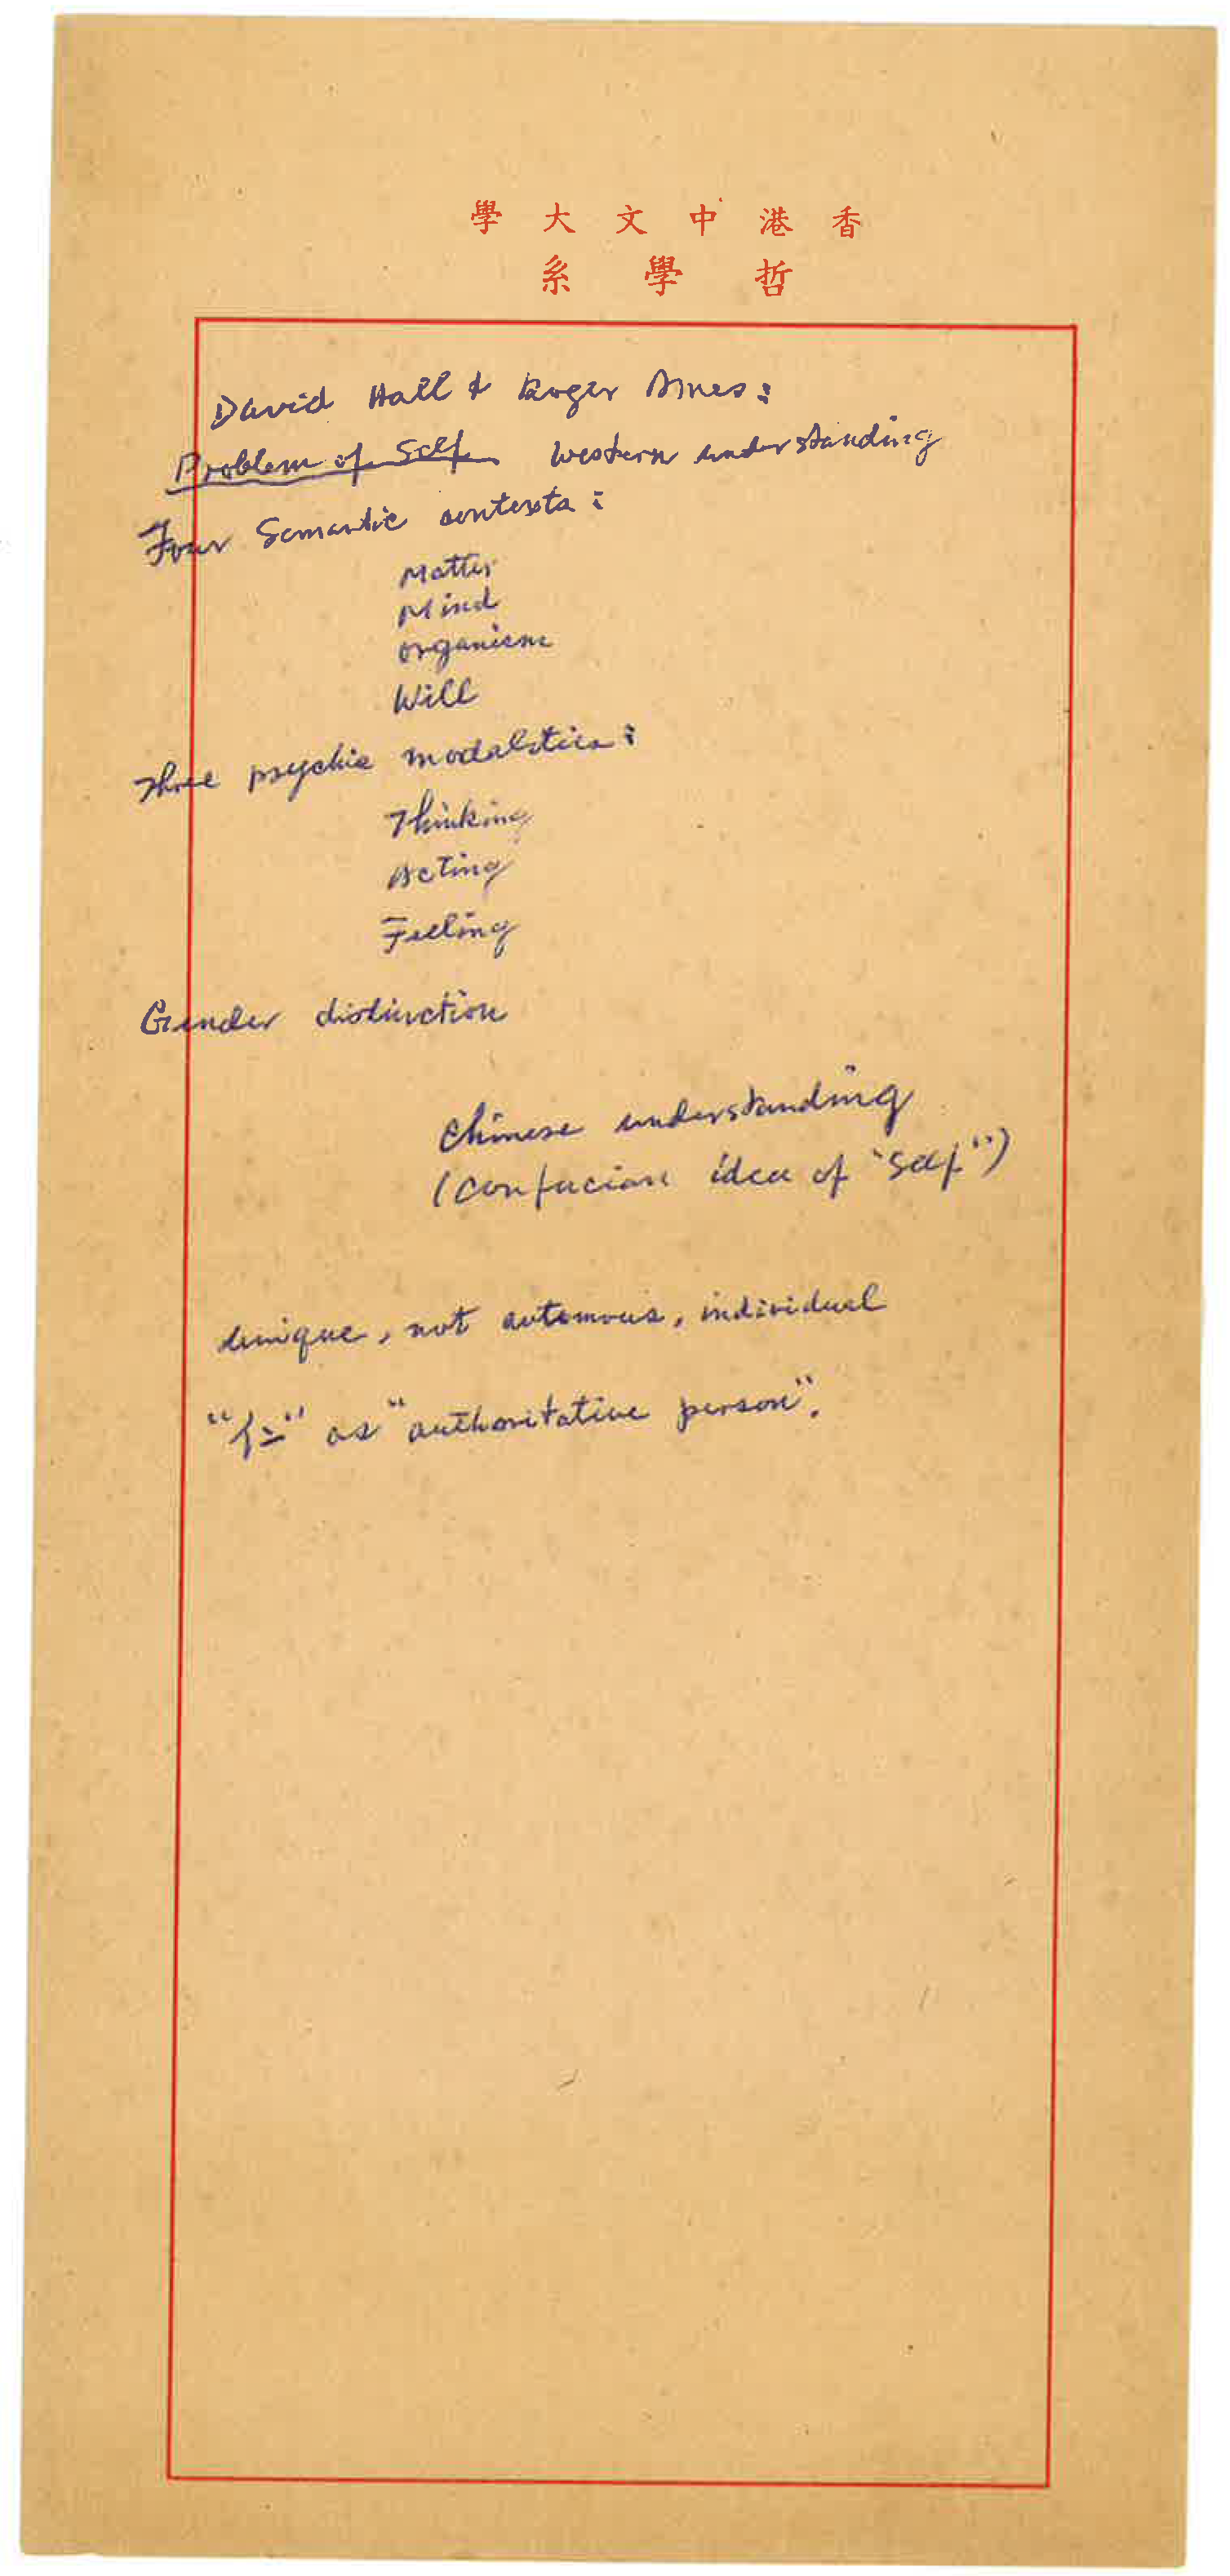 香港中文大學
哲學系
David Hall & Roger Ames:
Problem of Self Western understanding
Four Semantic contexts:
Matter
Mind
organism
Will
Three psychic modalities:
Thinking
Acting
Feeling
Gender distinction
Chinese understanding
(Confucian idea of "self")
unique, not autonomous, individual
"仁" as "authoritative person".